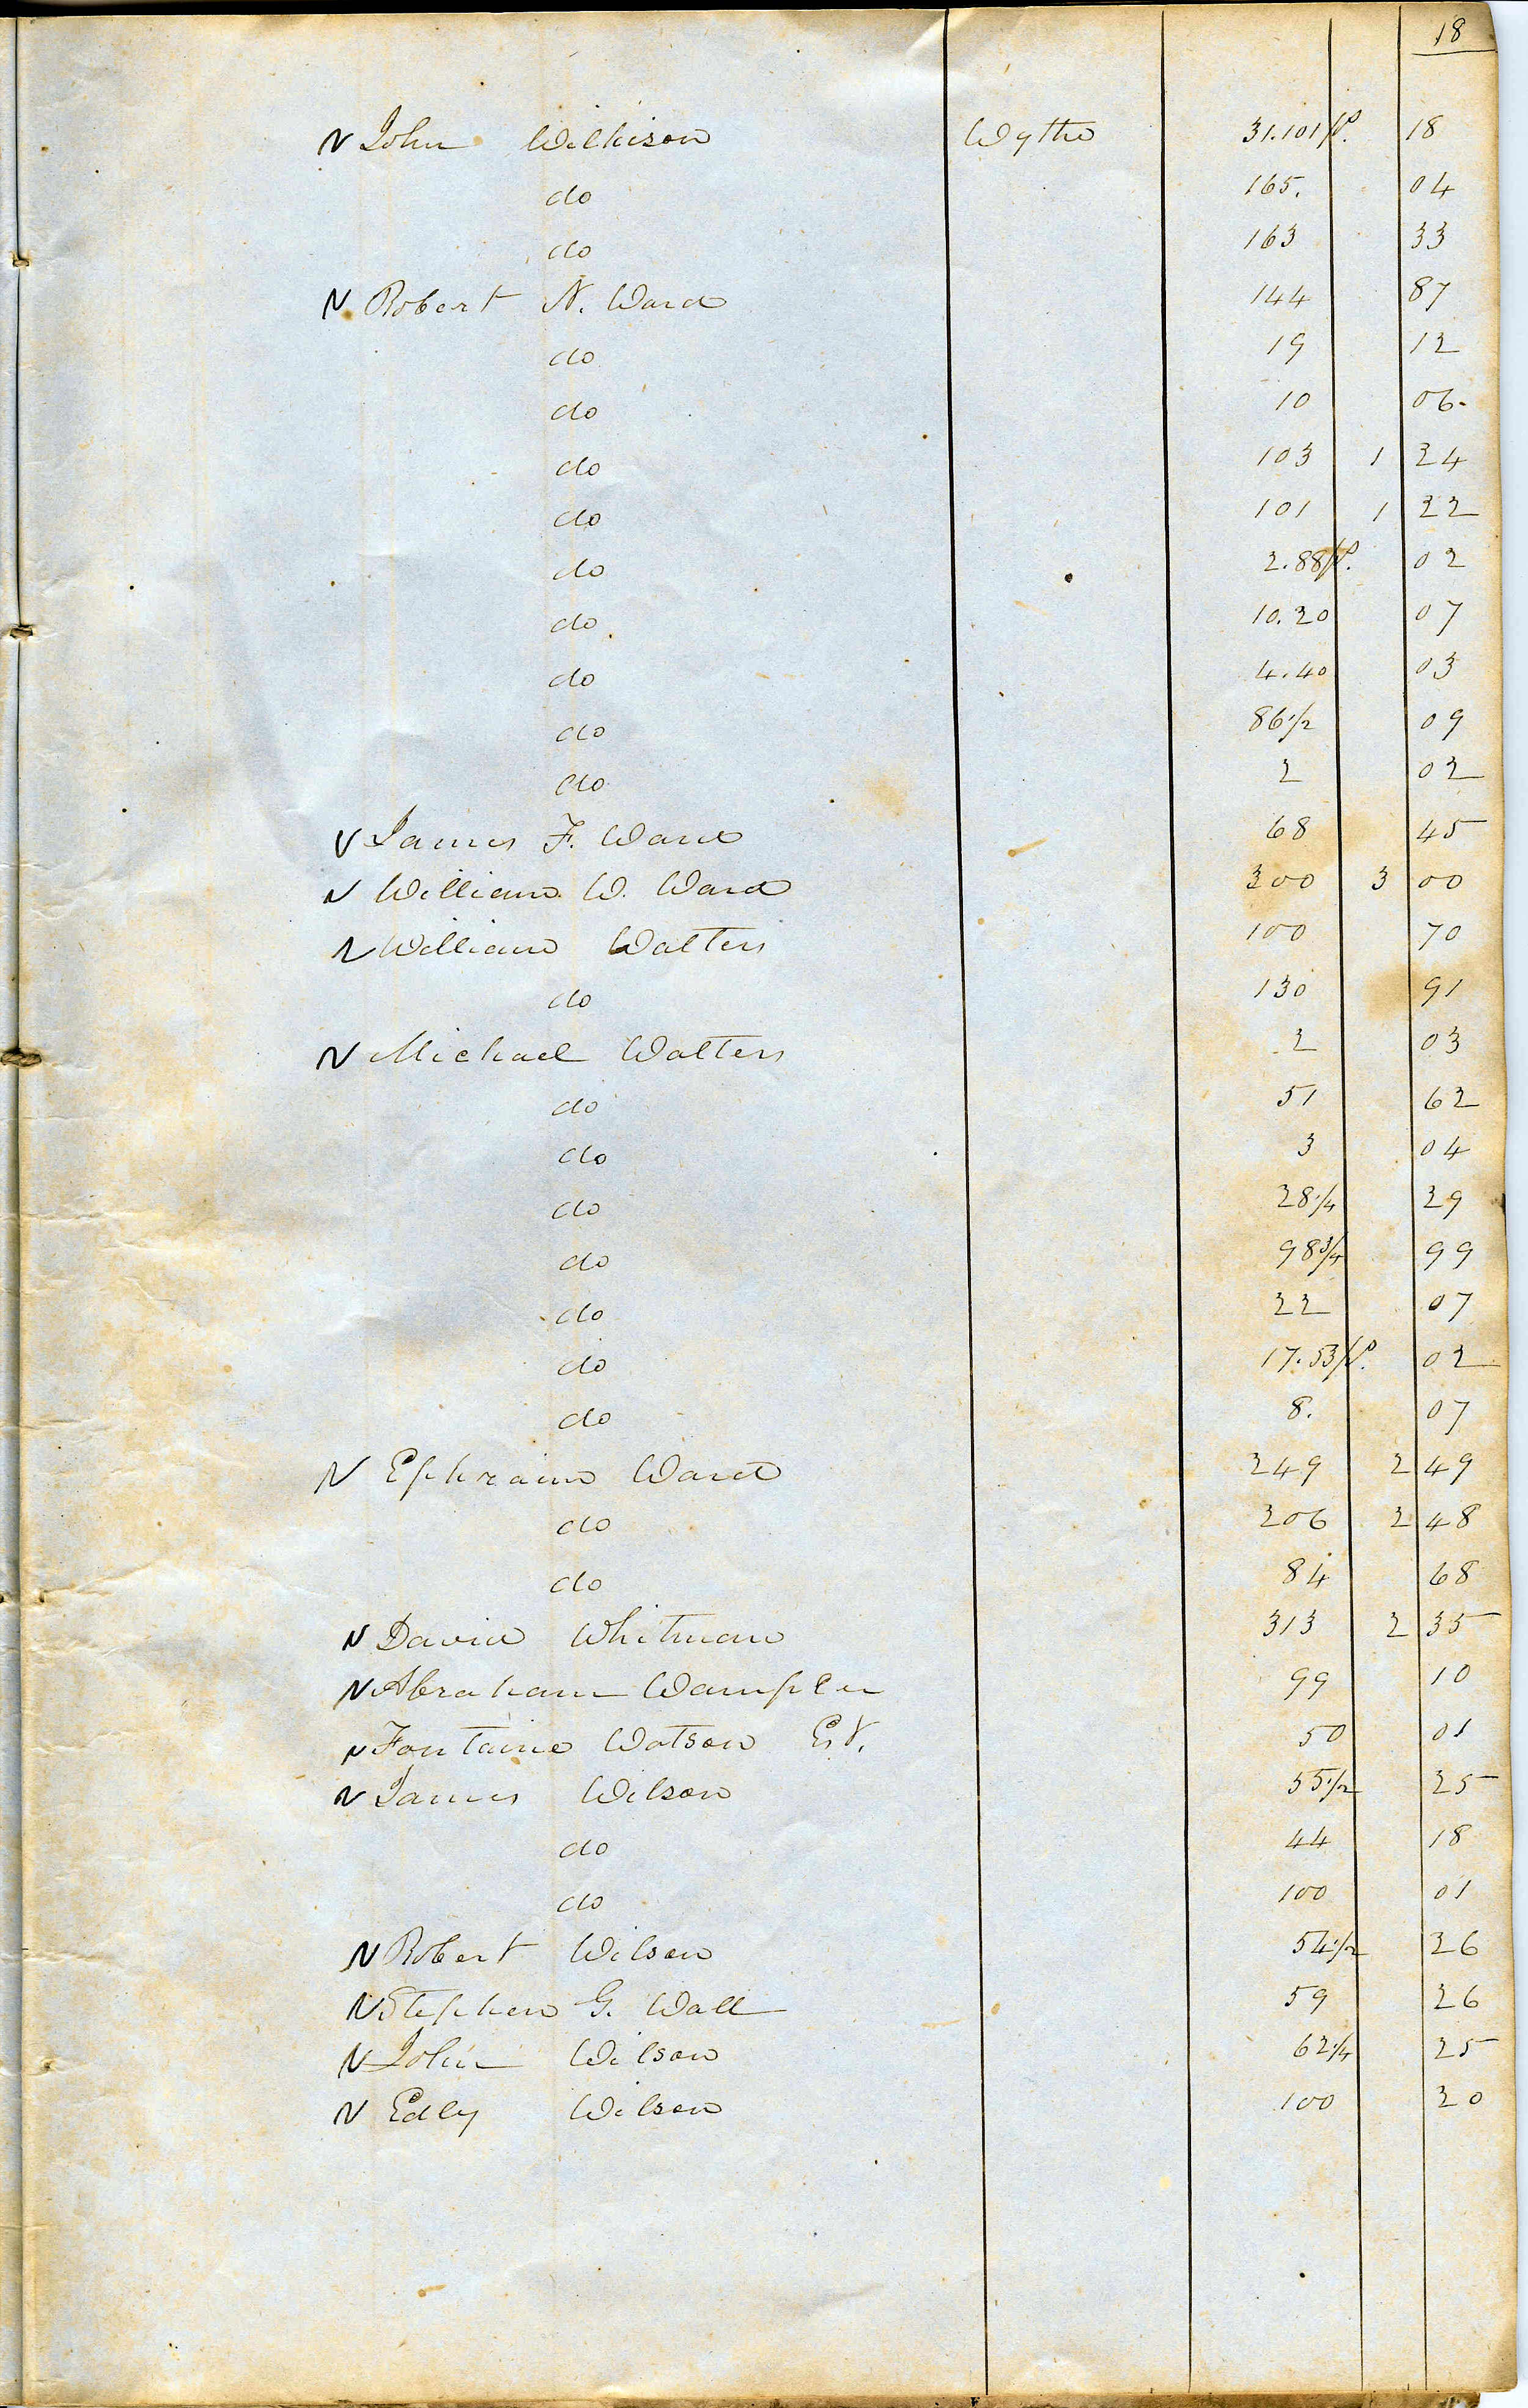 18
John Wilkison Wythe 31.101 p. 18
do 165. 04
do 163 33
Robert N. Ward 144 87
do 19 12
do 10 06.
do 103 1 24
do 101 1 22
do 2.88 p. 02
do 10.20 07
do 4.40 03
do 86 1/2 09
do 2 02
James F. Ward 68 45
William W. Ward 300 3 00
William Walters 100 70
do 130 91
Michael Walters 2 03
do 51 62
do 3 04
do 28 1/4 29
do 98 3/4 99
do 22 07
do 17.53 p. 02
do 8. 07
Ephraim Ward 249 2 49
do 206 2 48
do 84 68
David Whitman 313 2 35
Abraham Wampler 99 10
Fontaine Watson Est. 50 01
James Wilson 55 1/2 25
do 44 18
do 100 01
Robert Wilson 54 1/2 26
Stephen G. Wall 59 26
John Wilson 62 1/4 25
Edley Wilson 100 20